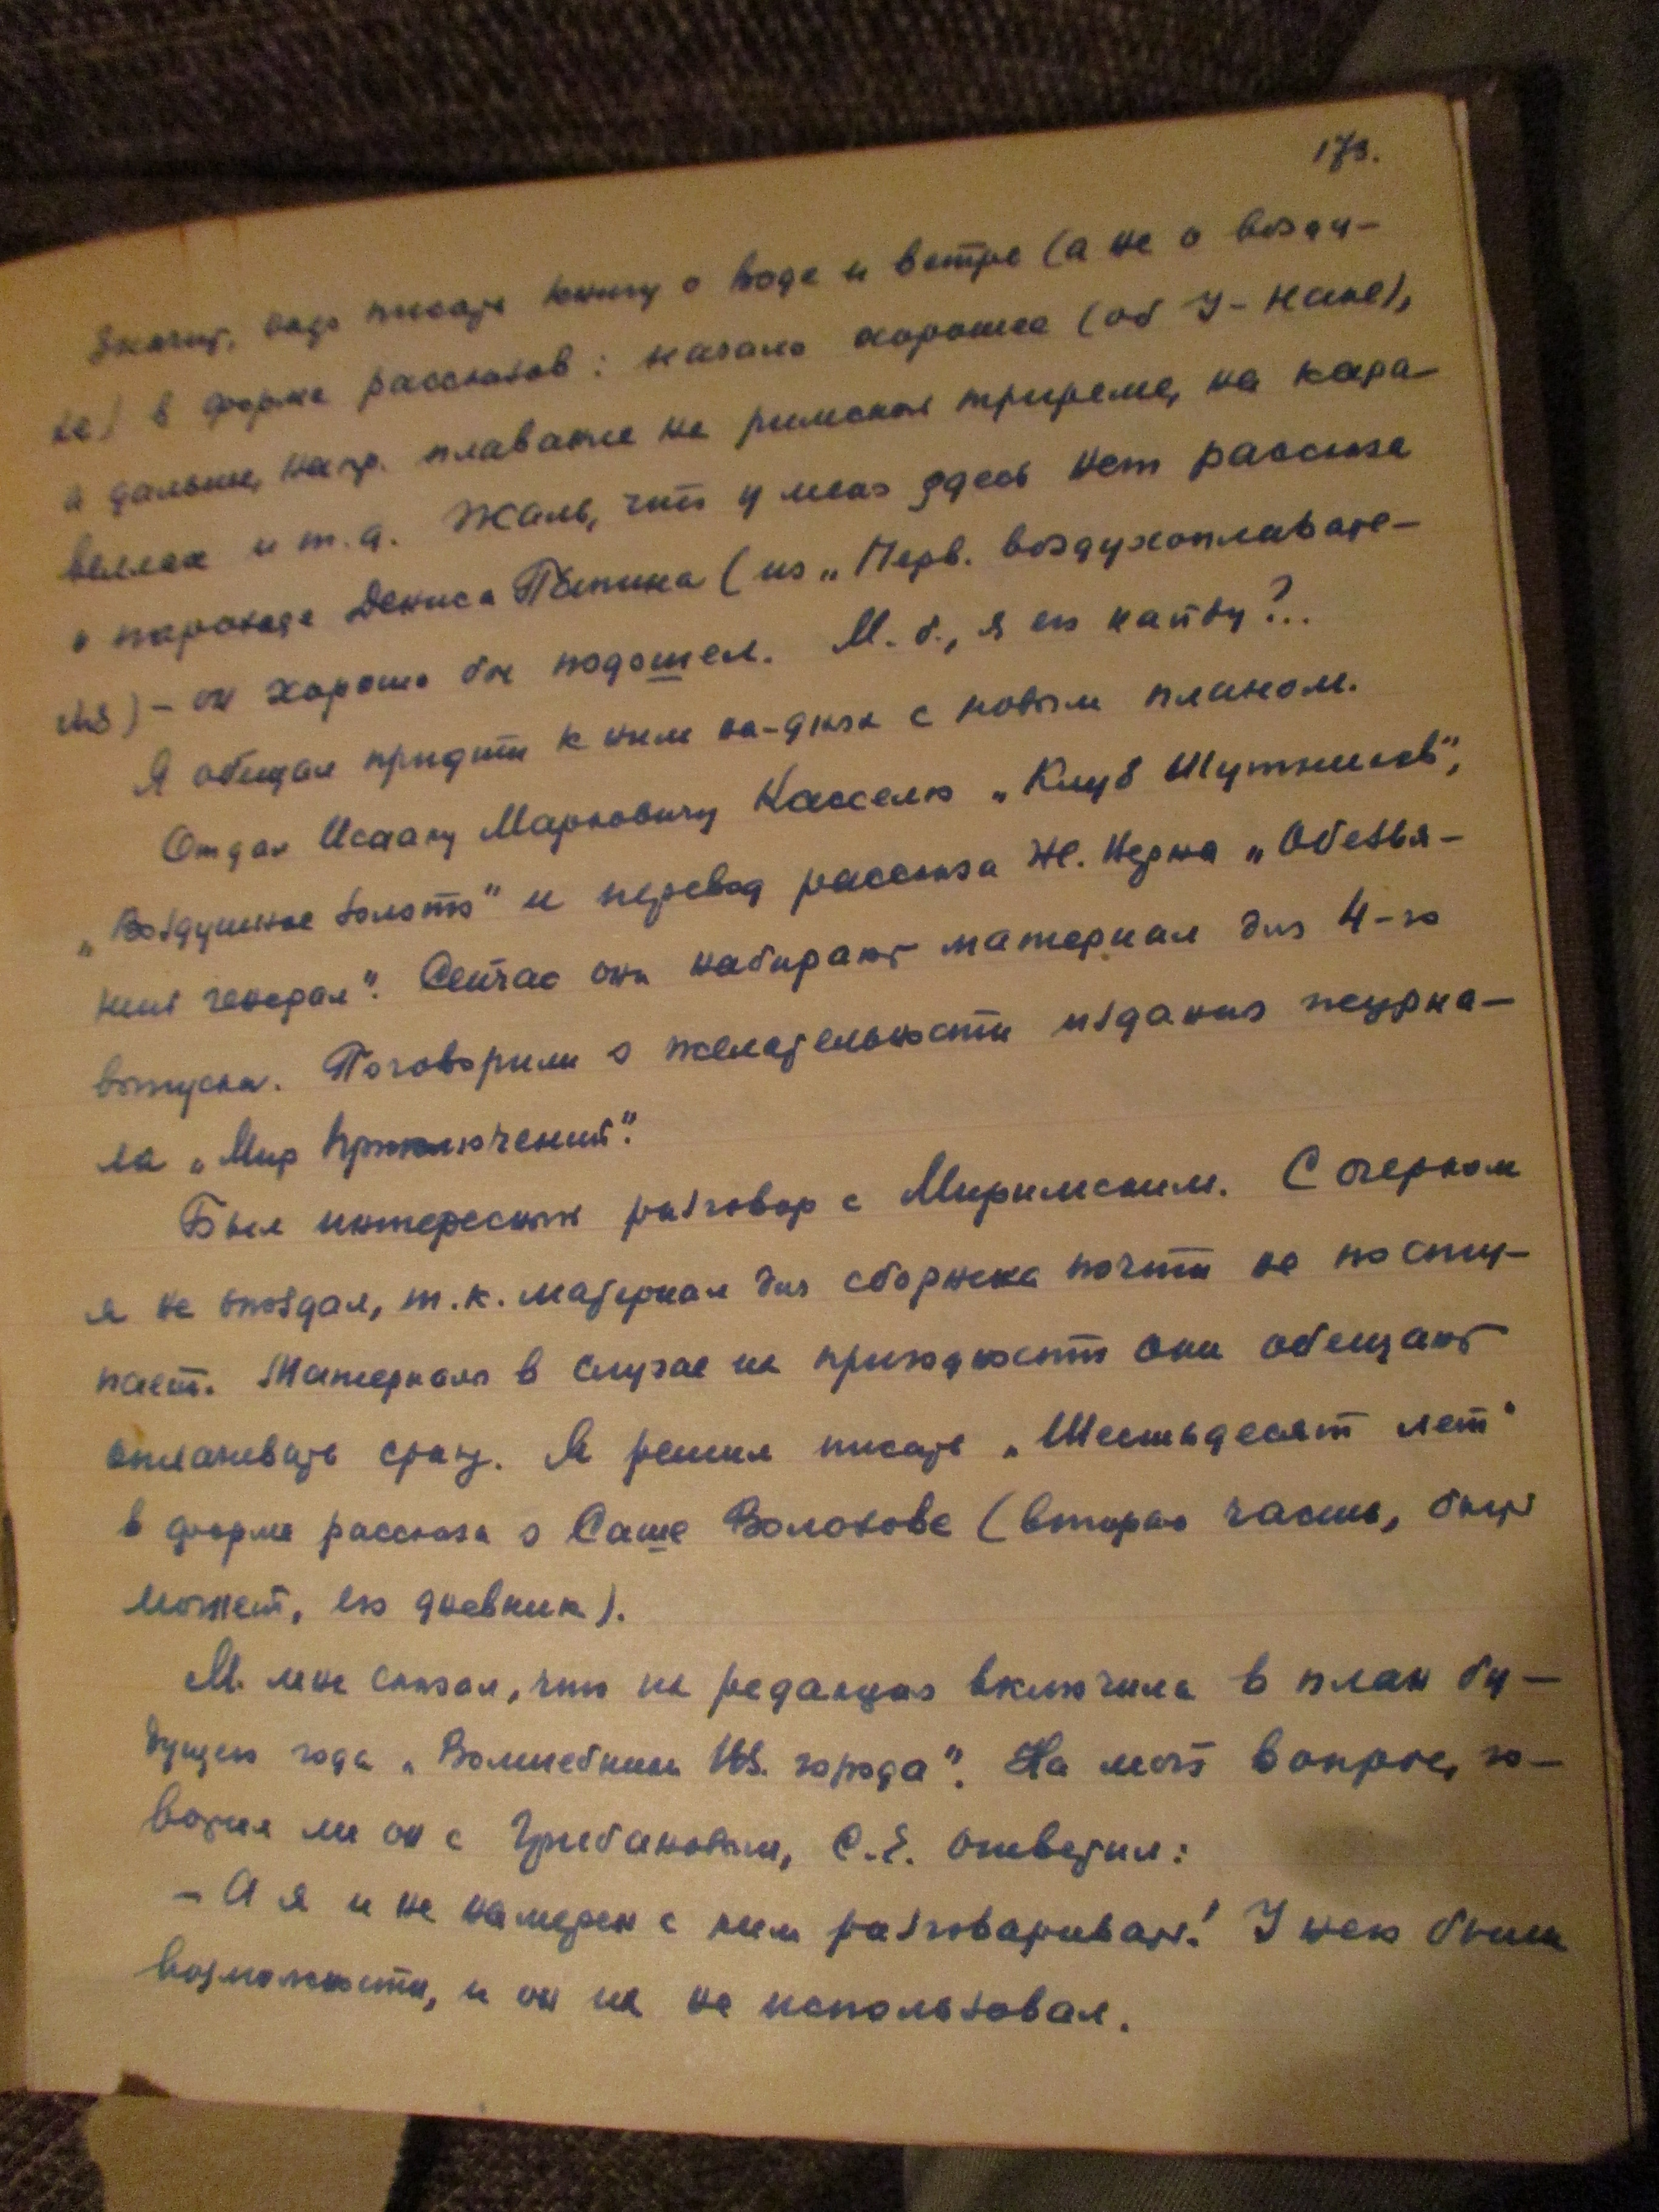 173.
Значит, надо писать книгу о воде и ветре (а не о возду-
хе) в форме рассказов: начало хорошее (об У-Наке),
а дальше, напр. плавание на римской триреме, на кара-
веллах и т.д. Жаль, что у меня здесь нет рассказа
о пароходе Дениса Папина (из „Перв. воздухоплавате-
ля) – он хорошо бы подошел. М.б., я его найду?..
Я обещал придти к ним на-днях с новым планом.
Отдал Исааку Марковичу Касселю „Клуб Шутников",
„Воздушное золото" и перевод рассказа Ж. Верна „Обезья-
ний генерал". Сейчас они набирают материал для 4-го
выпуска. Поговорили о желательности издания журна-
ла „Мир Приключений".
Был интересный разговор с Миримским. С очерком
я не опоздал, т.к. материал для сборника почти не посту-
пает. Материал в случае их пригодности они обещают
оплачивать сразу. Я решил писать „Шестьдесят лет"
в форме рассказа о Саше Волохове (вторая часть, быть
может, его дневник).
М. мне сказал, что их редакция включила в план бу-
дущего года „Волшебник Из. города". На мой вопрос, го-
ворил ли он с Грибановым, С.Е. ответил:
– А я и не намерен с ним разговаривать! У него были
возможности, и он их не использовал.